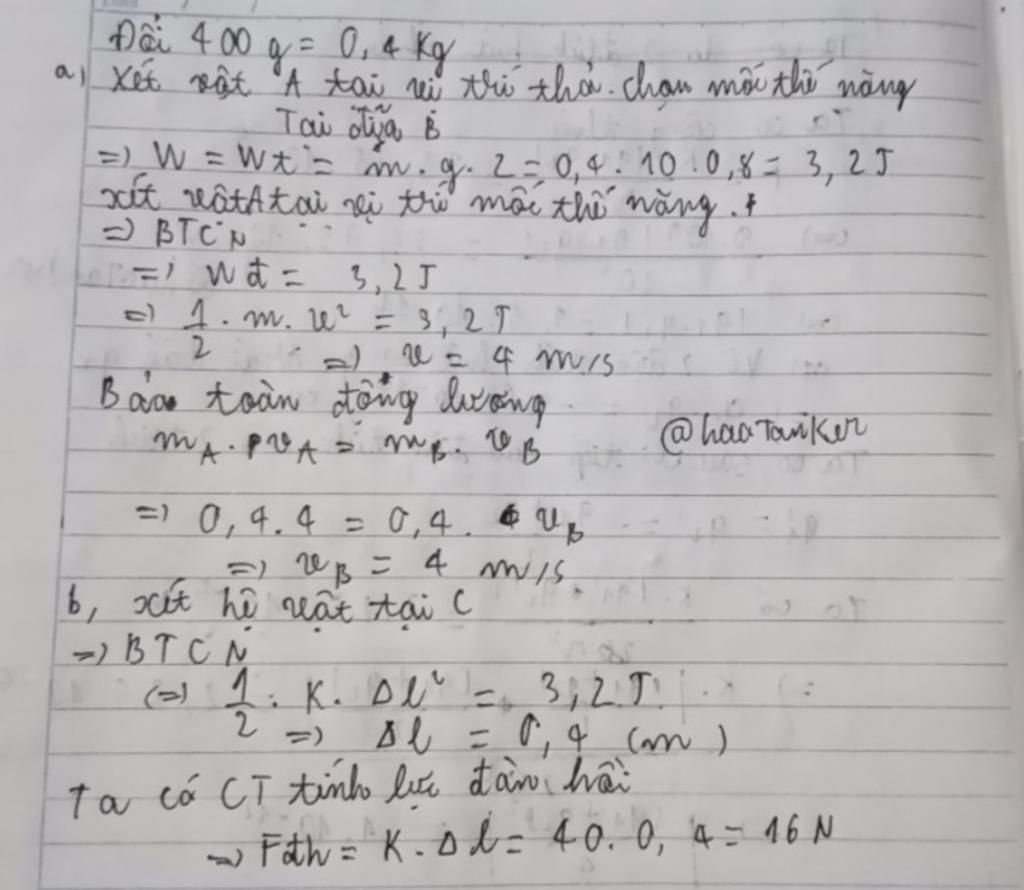 Đổi 400 g = 0,4 Kg
a, Xét vật A tại vị trí thả. chọn mốc thế năng
Tại đĩa B
=> W = Wt = m.g.z = 0,4.10.0,8 = 3,2J
xét vật A tại vị trí mốc thế năng.
=> BTCN
=> Wđ = 3,2J
=> 1/2 . m. v² = 3,2J
=> v = 4 m/s
Bảo toàn động lượng
mA . vA = mB. vB
@haoTanKer
=> 0,4.4 = 0,4. vB
=> vB = 4 m/s
b, xét hệ vật tại C
=> BTCN
(=) 1/2 . K. Δl² = 3,2J
=> Δl = 0,4 (m)
Ta có CT tính lực đàn hồi
=> Fđh = K.Δl = 40.0,4 = 16 N